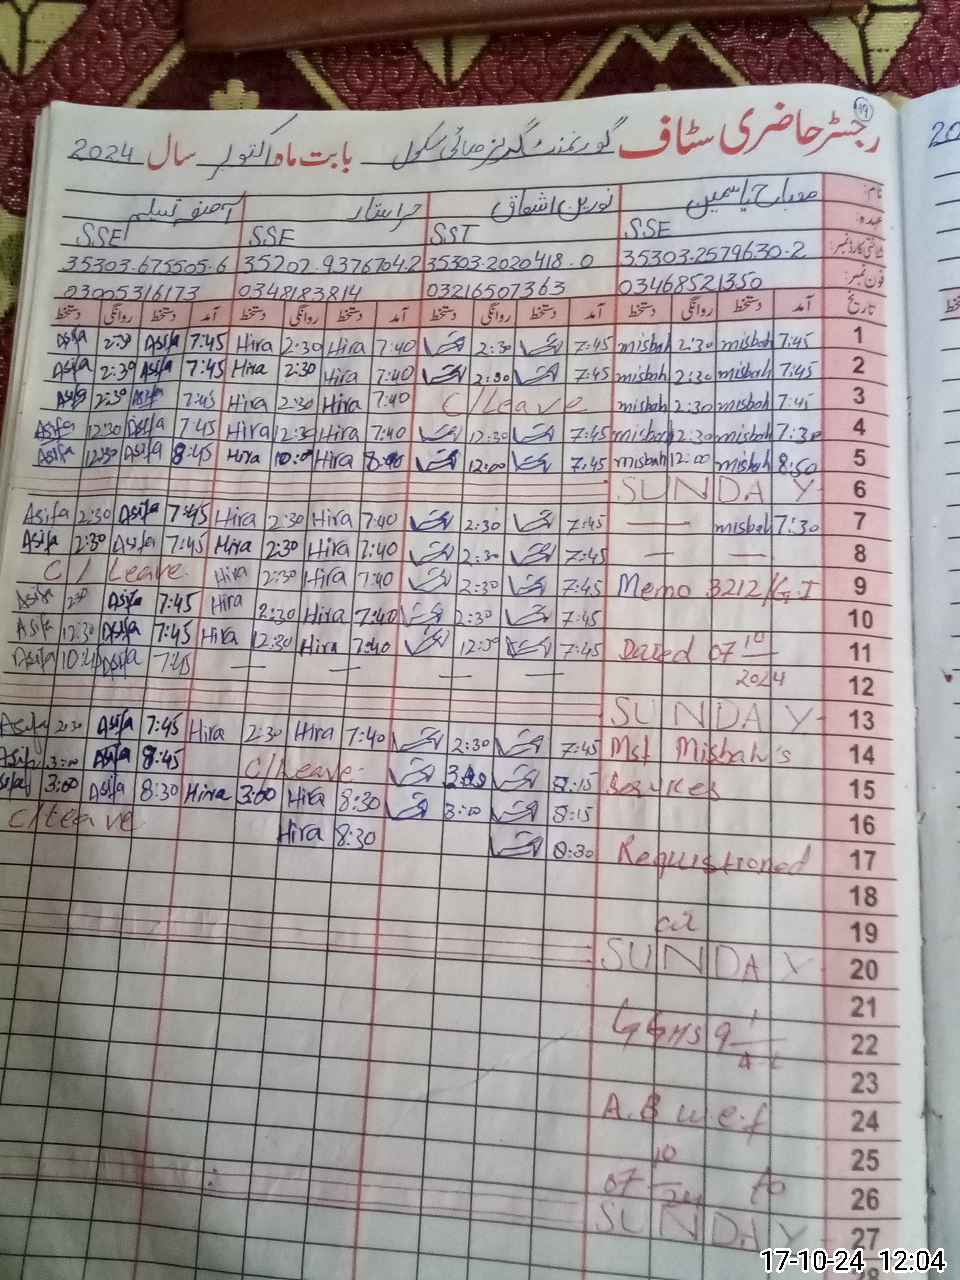 19
رجسٹر حاضری سٹاف گورنمنٹ گرلز ہائی سکول بابت ماہ اکتوبر سال 2024
نام: مصباح یاسمین نورین اشفاق حرا ستار آصفہ تسلیم
عہدہ: SSE SST SSE SSE
شناختی کارڈ نمبر: 35303-2579630-2 35303-2020418-0 35202-9376704-2 35303-675505-6
فون نمبر: 03468521350 03216507363 0348183814 03005316173
تاریخ آمد دستخط روانگی دستخط آمد دستخط روانگی دستخط آمد دستخط روانگی دستخط آمد دستخط روانگی دستخط
Asifa 2:30 Asifa 7:45 Hira 2:30 Hira 7:40 2:30 7:45 misbah 2:30 misbah 7:45 1
Asifa 2:30 Asifa 7:45 Hira 2:30 Hira 7:40 2:30 7:45 misbah 2:30 misbah 7:45 2
Asifa 2:30 Asifa 7:45 Hira 2:30 Hira 7:40 C/Leave misbah 2:30 misbah 7:45 3
Asifa 12:30 Asifa 7:45 Hira 12:30 Hira 7:40 12:30 7:45 misbah 12:30 misbah 7:30 4
Asifa 12:30 Asifa 8:45 Hira Hira 12:00 7:45 misbah 12:00 misbah 8:50 5
SUNDAY 6
Asifa 2:30 Asifa 7:45 Hira 2:30 Hira 7:40 2:30 7:45 — misbah 7:30 7
Asifa 2:30 Asifa 7:45 Hira 2:30 Hira 7:40 2:30 7:45 — — 8
C/Leave Hira 2:30 Hira 7:40 2:30 7:45 Memo 3212/G.I 9
Asifa 2:30 Asifa 7:45 Hira 2:30 Hira 7:40 2:30 7:45 10
Asifa 12:30 Asifa 7:45 Hira 12:30 Hira 7:40 12:30 7:45 Dated 07 10 11
Asifa Asifa 7:45 — — — — 2024 12
SUNDAY 13
Asifa 2:30 Asifa 7:45 Hira 2:30 Hira 7:40 2:30 7:45 Mst Misbah's 14
Asifa 3:00 Asifa 8:45 C/Leave 8:15 Services 15
Asifa 3:00 Asifa 8:30 Hira 3:00 Hira 8:30 3:00 8:15 16
C/Leave Hira 8:30 8:30 Requistioned 17
18
at 19
SUNDAY 20
21
GGHS 9 1 22
23
A.B w.e.f 24
10 25
07 24 to 26
SUNDAY 27
17-10-24 12:04